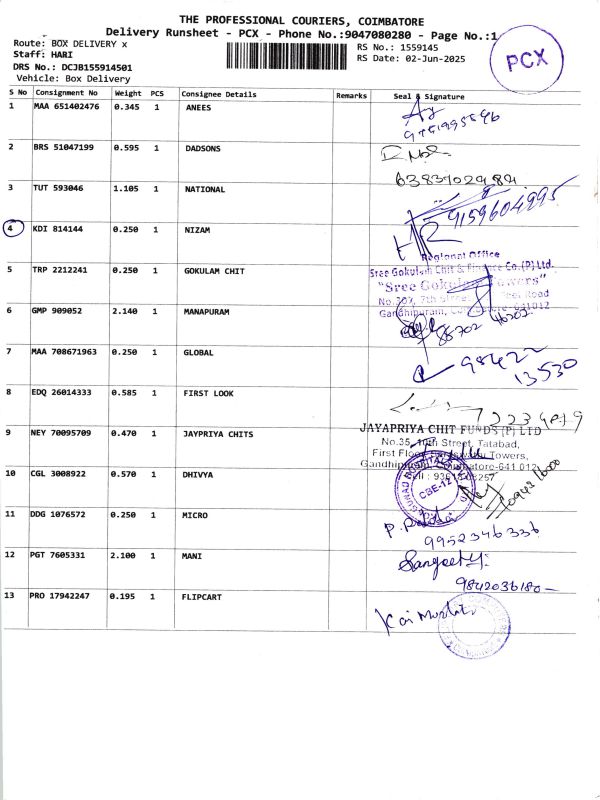 THE PROFESSIONAL COURIERS, COIMBATORE
Delivery Runsheet - PCX - Phone No.:9047080280 - Page No.:1
Route: BOX DELIVERY x
Staff: HARI
DRS No.: DCJB155914501
Vehicle: Box Delivery
RS No.: 1559145
RS Date: 02-Jun-2025
PCX
S No Consignment No Weight PCS Consignee Details Remarks Seal & Signature
1 MAA 651402476 0.345 1 ANEES
9751995596
2 BRS 51047199 0.595 1 DADSONS
6383702984
3 TUT 593046 1.105 1 NATIONAL
9159604995
4 KDI 814144 0.250 1 NIZAM
Regional Office
5 TRP 2212241 0.250 1 GOKULAM CHIT
Sree Gokulam Chit & Finance Co.(P) Ltd.
"Sree Gokulam Towers"
No.307, 7th Street, Road
Gandhipuram, Coimbatore-641012
6 GMP 909052 2.140 1 MANAPURAM
7 MAA 708671963 0.250 1 GLOBAL
98422
13530
8 EDQ 26014333 0.585 1 FIRST LOOK
9 NEY 70095709 0.470 1 JAYPRIYA CHITS
JAYAPRIYA CHIT FUNDS (P) LTD
No.35, 10th Street, Tatabad,
First Floor, Towers,
Gandhipuram, Coimbatore-641 012
10 CGL 3008922 0.570 1 DHIVYA
CBE-12
11 DDG 1076572 0.250 1 MICRO
9952346336
12 PGT 7605331 2.100 1 MANI
Sangeetha
9842036180
13 PRO 17942247 0.195 1 FLIPCART